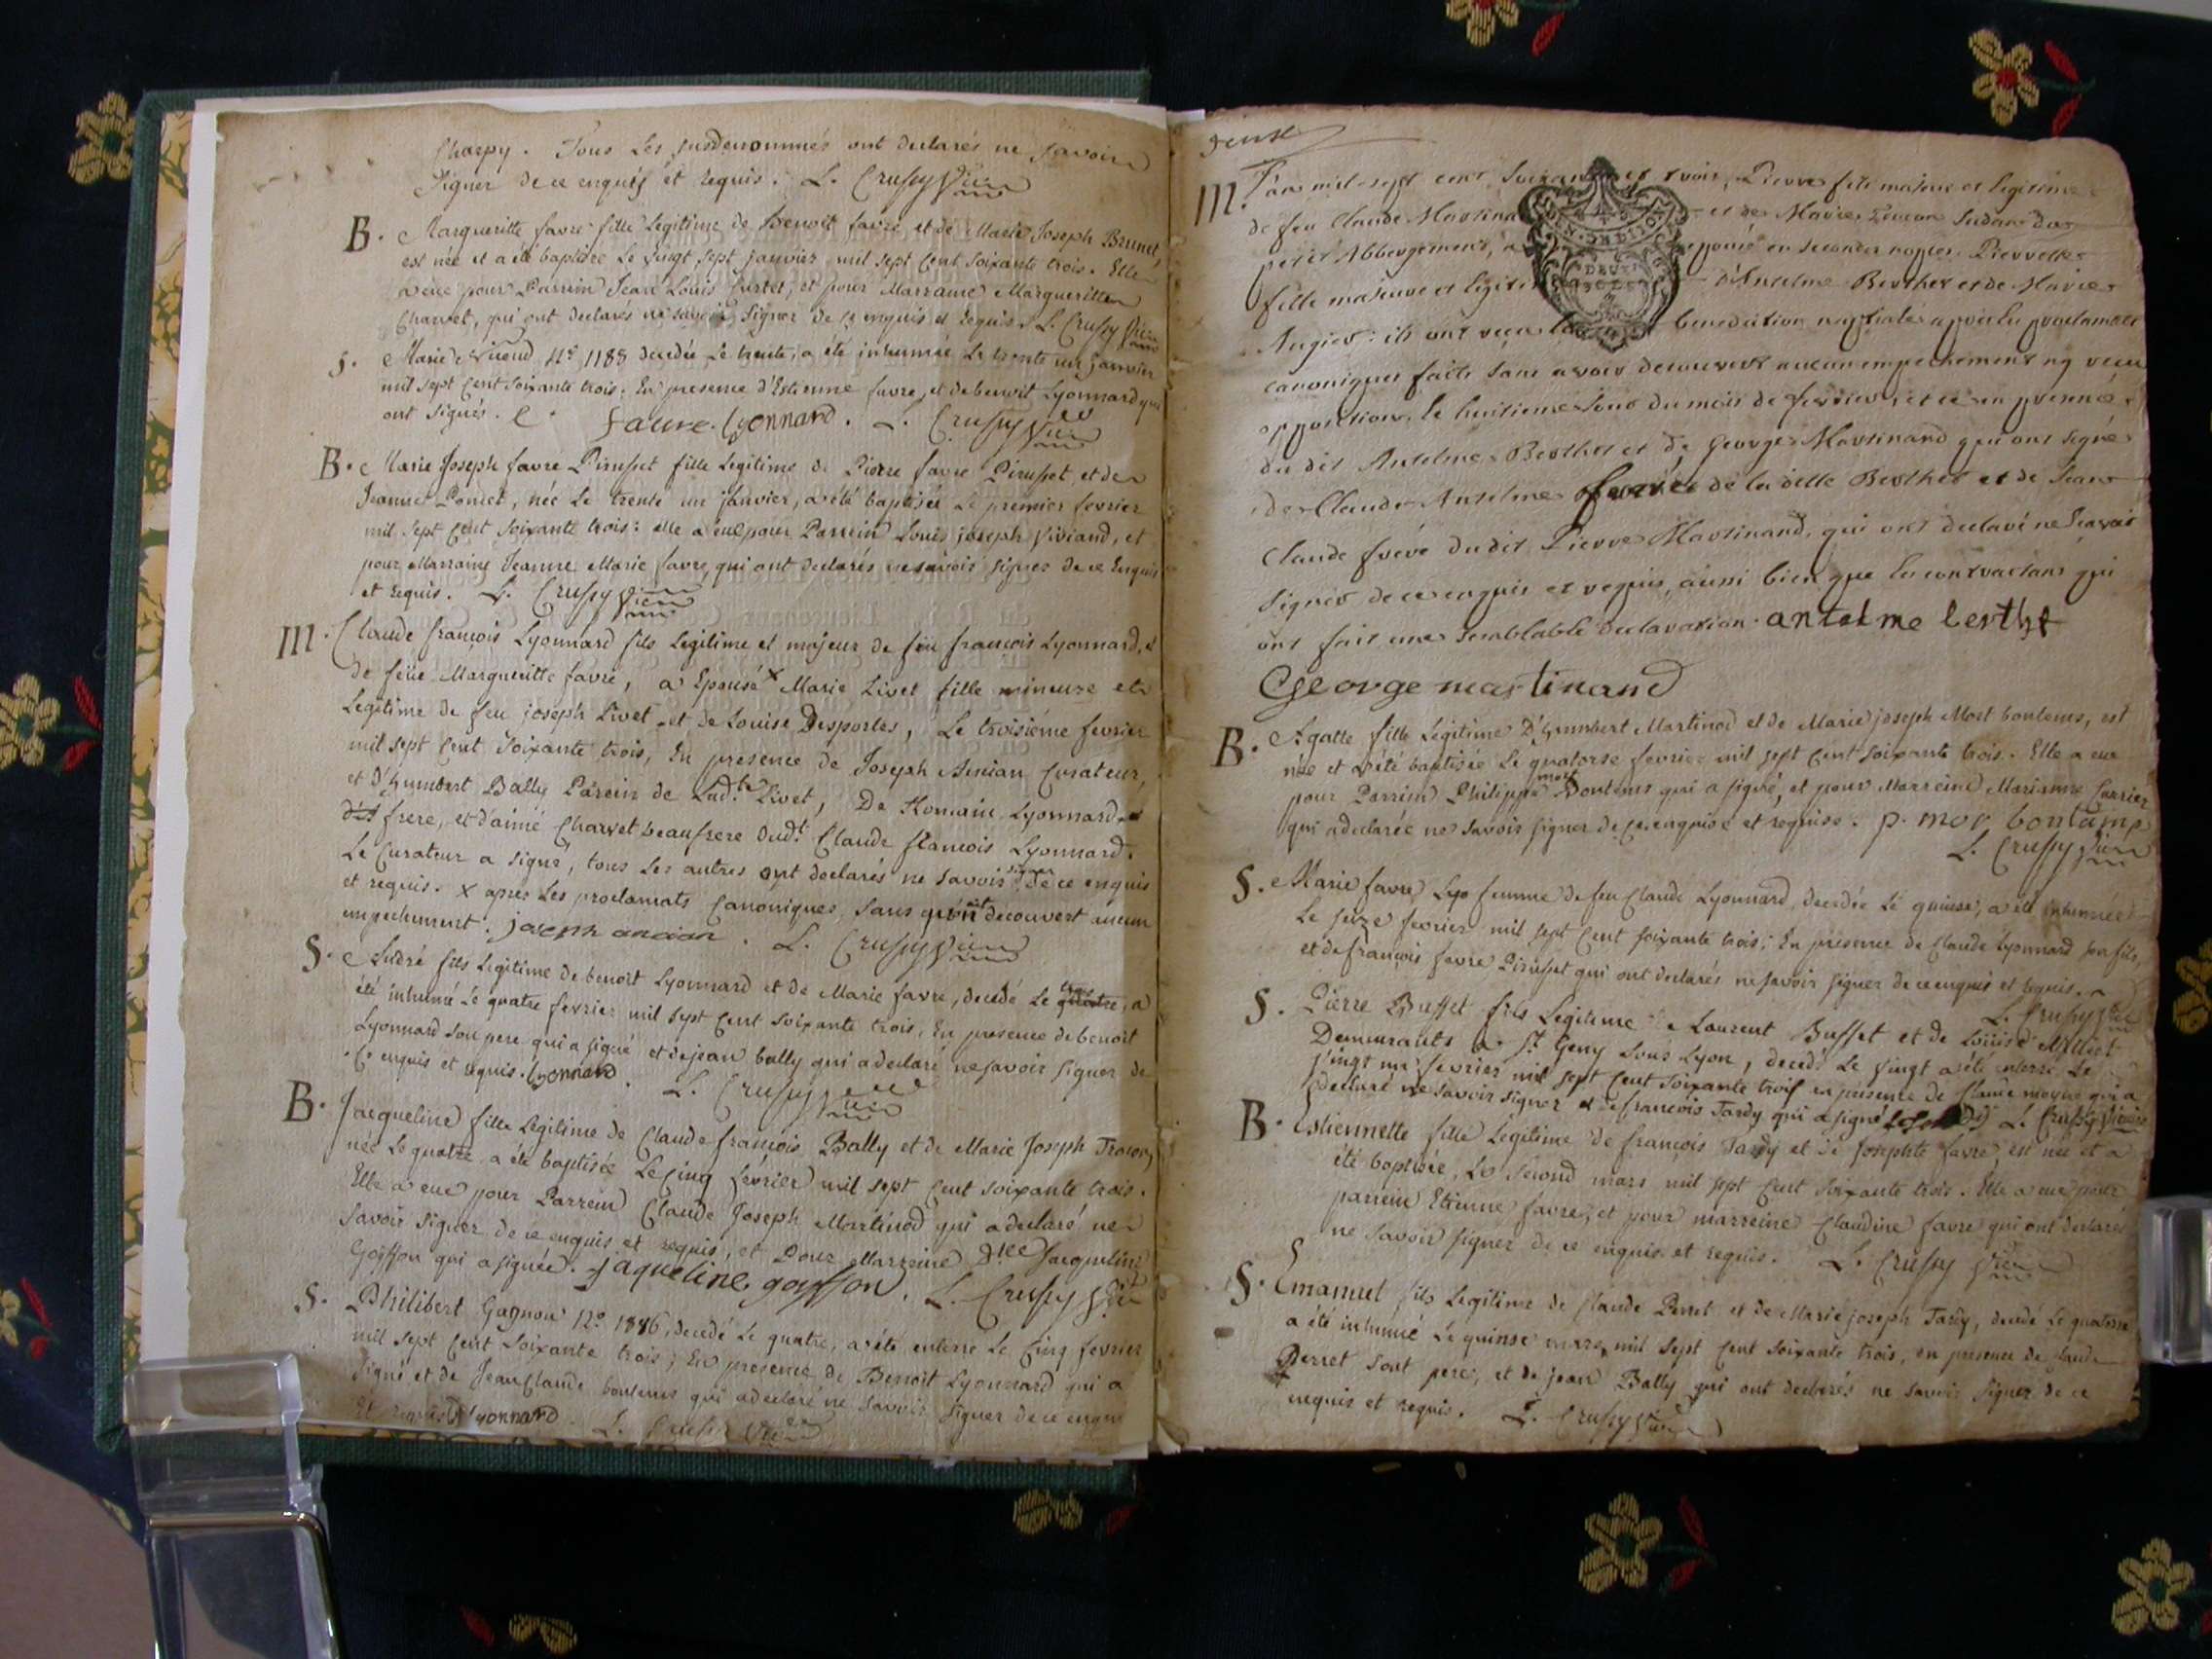 Charpy. Tous Les susdenommés ont declarés ne savoir
signer de ce enquis et requis. L. Crussy Vic
B. Margueritte favre fille Legitime de Benoit favre et de Marie Joseph Brunet,
est née et a été baptisée Le vingt sept janvier mil sept Cent soixante trois. Elle
a eue pour Parrin Jean Louis Curtet, et pour Marraine Margueritte
Charvet, qui ont declarés ne savoir signer de ce enquis et requis. L. Crussy Vic
S. Marie 1185 decedée Le trente, a été inhumée Le trente un janvier
mil sept Cent soixante trois: En presence d'Estienne favre, et de benoit Lyonnard qui
ont signés. faure. Lyonnard. L. Crussy Vic
B. Marie Joseph favre Pirusset fille Legitime de Pierre favre Pirusset et de
Jeanne Poncet, née Le trente un janvier, a été baptisée Le premier fevrier
mil sept Cent soixante trois: elle a eue pour Parrein Louis joseph Viviand, et
pour Marraine Jeanne Marie favre, qui ont declarés ne savoir signer de ce Enquis
et requis. L. Crussy Vic
M. Claude françois Lyonnard fils Legitime et majeur de feu françois Lyonnard, et
de feüe Margueritte favre, a Epousé x Marie Livet fille mineure et
Legitime de feu joseph Livet et de Louise Desportes, Le troisième fevrier
mil sept Cent soixante trois, En presence de Joseph Ancian Curateur,
et d'humbert Bally Parein de Lad.te Livet, De Romain Lyonnard
frere, et d'aimé Charvet beaufrere dud.t Claude francois Lyonnard.
Le Curateur a signé, tous Les autres ont declarés ne savoir signer de ce enquis
et requis. x apres Les proclamats Canoniques, sans qu'on ait decouvert aucun
empechement. joseph ancian. L. Crussy Vic
S. André fils Legitime de benoit Lyonnard et de Marie favre, decedé Le trois quatre, a
été inhumé Le quatre fevrier mil sept Cent soixante trois, En presence de benoit
Lyonnard son pere qui a signé et de jean bally qui a declaré ne savoir signer de
Ce enquis et requis. Lyonnard. L. Crussy Vic
B. Jacqueline fille Legitime de Claude francois Bally et de Marie Joseph
née Le quatre a été baptisée Le Cinq fevrier mil sept Cent soixante trois.
Elle a eue pour Parrein Claude Joseph Martinod qui a declaré ne
savoir signer de ce enquis et requis, et Pour Marreine Jacqueline
Goiffon qui a signée. jaqueline goyffon. L. Crussy Vic
S. Philibert Gagnon 12.o 1186, decedé Le quatre, a été enterré Le Cinq fevrier
mil sept Cent soixante trois; En presence de Benoit Lyonnard qui a
signé et de Jean Claude bontems qui a declaré ne savoir signer de ce enquis
et requis Lyonnard. L. Crussy Vic
deuxe
M. L'an mil sept cent soixante et trois, Pierre fils majeur et legitime
de feu Claude Martina et de Marie
petit Abbergement, a epousé en secondes nopces Pierrette
fille majeure et legit d'Antelme Berthet et de Marie
Augier: ils ont reçu benediction nuptiale après les proclamats
canoniques faits sans avoir decouvert aucun empechement ny reçu
opposition, le huitieme jour du mois de fevrier, et ce en presence
du dit Antelme Berthet et de George Martinand qui ont signé
de Claude Antelme frere de la ditte Berthet et de Jean
Claude frere dudit Pierre Martinand, qui ont declaré ne scavoir
signer de ce enquis et requis, aussi bien que les contractans qui
ont fait une semblable declaration. antelme berthet
George martinand
B. Agatte fille Légitime D'humbert Martinod et de Marie joseph Mort bontems, est
née et a été baptisée Le quatorse fevrier mil sept Cent soixante trois. Elle a eue
pour Parrein Philippe mort Bontems qui a signé, et pour Marreine Marianne Carrier
qui a declarée ne savoir signer de Ce enquise et requise. p. mor bontamp
L. Crussy Vic
S. Marie favre Lyo femme de feu Claude Lyonnard, decedée Le quinse, a été inhumée
Le seize fevrier mil sept Cent soixante trois; En presence de Claude Lyonnard son fils,
et de françois favre Pirusset qui ont declarés ne savoir signer de ce enquis et requis.
L. Crussy Vic
S. Pierre Buffet fils Legitime de Laurent Buffet et de Louise Milliet
Demeurants a St. Geny Sous Lyon, decedé Le vingt a été enterré Le
vingt un fevrier mil sept Cent soixante trois en presence de Claude moyne qui a
declaré ne savoir signer et de francois Tardy qui a signé L. Crussy Vicaire
B. Estiennette fille Legitime de francois Tardy et de Josephte favre, est née et a
été baptisée, Le second mars mil sept Cent soixante trois. Elle a eue pour
parrein Etienne favre, et pour marreine Claudine favre qui ont declarés
ne savoir signer de ce enquis et requis. L. Crussy Vic
S. Emanuel fils Legitime de Claude Perret et de Marie joseph Tardy, decedé Le quatorse
a été inhumé Le quinse mars mil sept Cent soixante trois, en presence de Claude
Perret sont pere, et de jean Bally qui ont declarés ne savoir signer de ce
enquis et requis. L. Crussy Vic